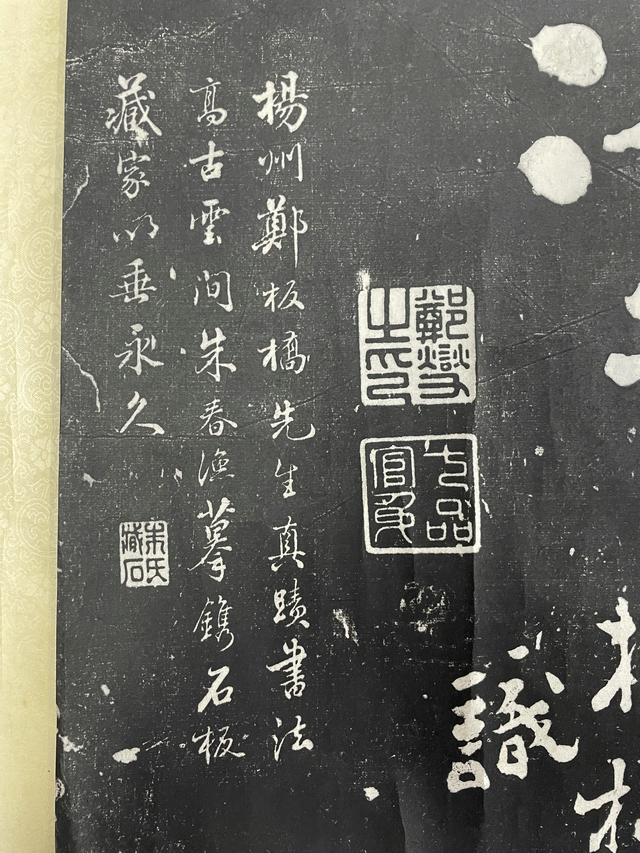 板橋
識
鄭燮之印
七品官耳
楊州鄭板橋先生真蹟書法
高古雲間朱春漁摹鐫石板
藏家以垂永久
朱氏藏石